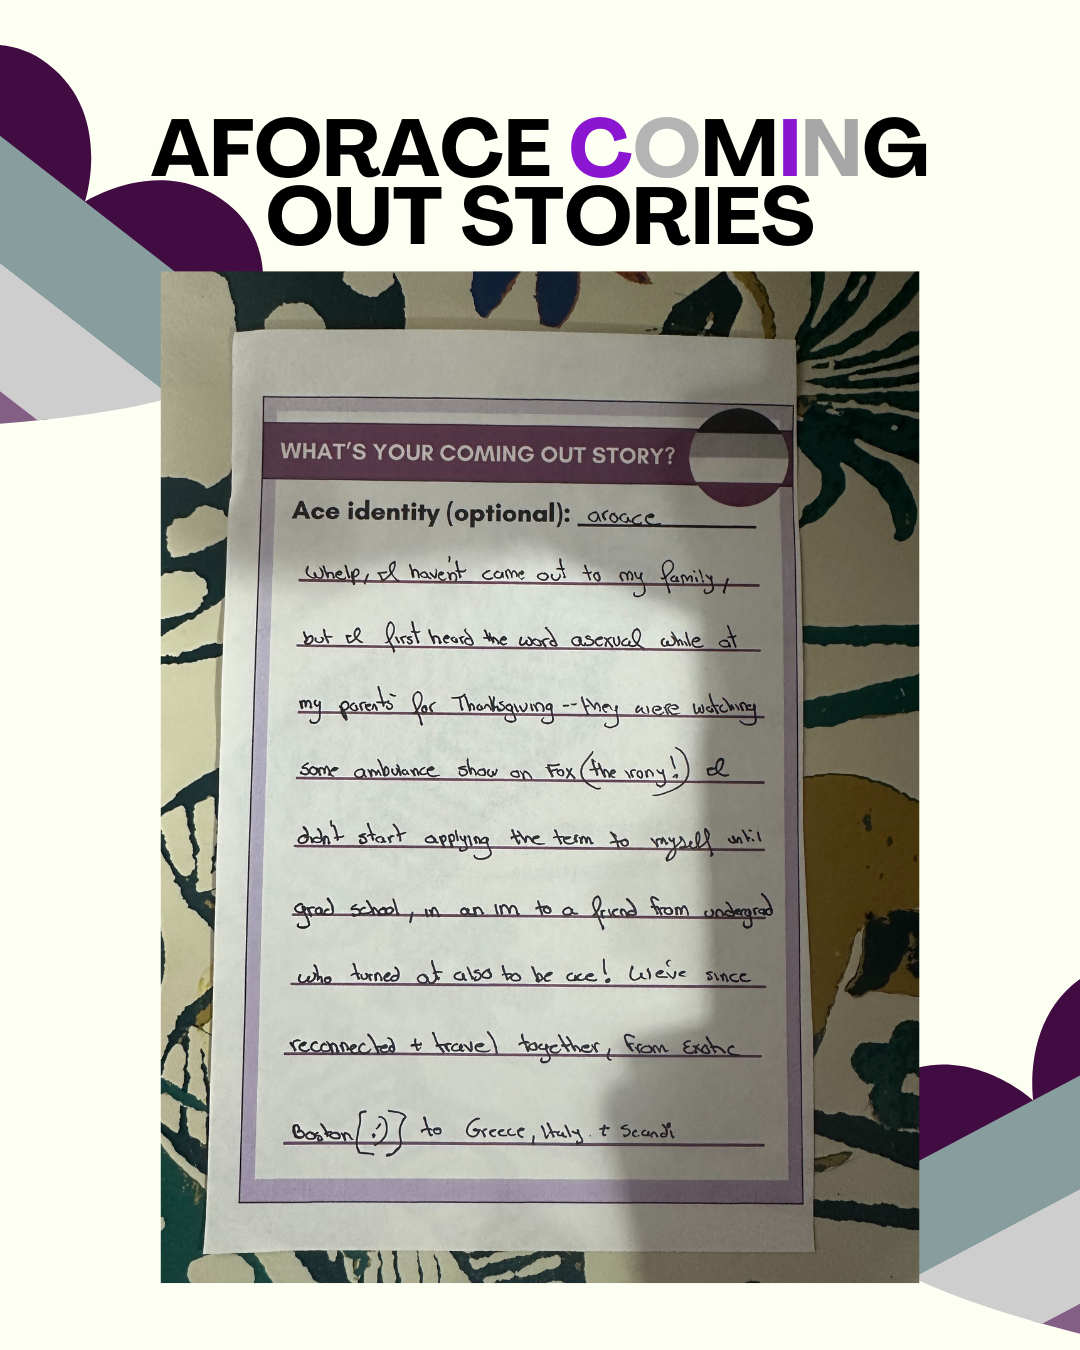 AFORACE COMING
OUT STORIES
WHAT'S YOUR COMING OUT STORY?
Ace identity (optional): aroace
Whelp, I haven't come out to my family,
but I first heard the word asexual while at
my parents' for Thanksgiving -- they were watching
some ambulance show on Fox (the irony!) I
didn't start applying the term to myself until
grad school, in an IM to a friend from undergrad
who turned ot also to be ace! We've since
reconnected + travel together, from exotic
Boston [:)] to Greece, Italy + Scandi